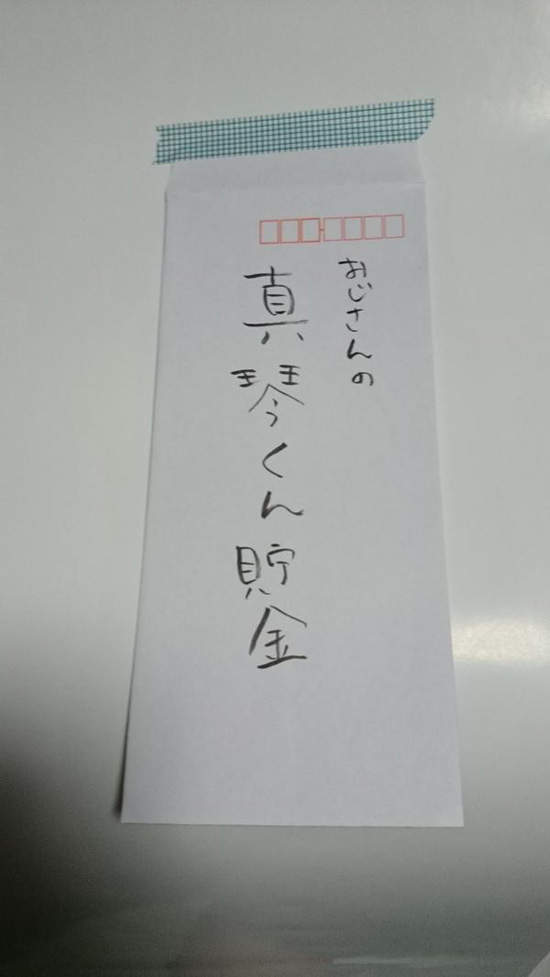 おじさんの
真琴くん貯金